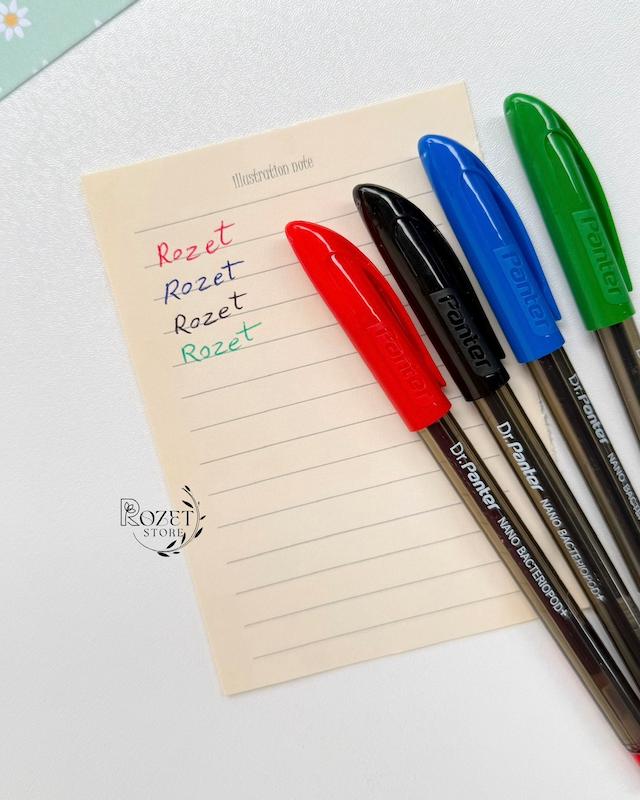 Illustration note
Rozet
Rozet
Rozet
Rozet
Panter
Panter
Panter
Panter
Dr.Panter NANO BACTERIOPOD+
Dr.Panter NANO BACTERIOPOD+
Dr.Panter NANO BACTERIO
ROZET
STORE